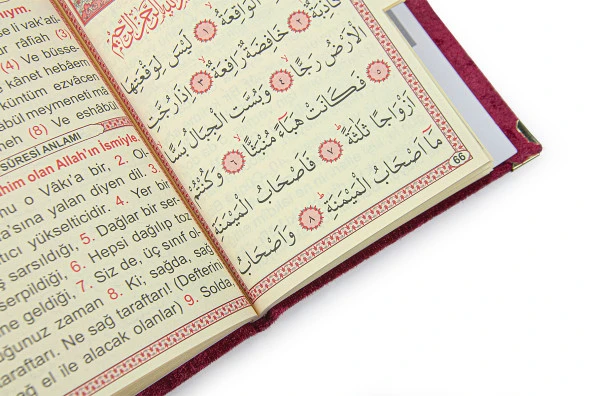 ıyım.
se li vak'ati-
ur râfiah (3)
(4) Ve büsse-
kânet hebâen
küntüm ezvâcen
âbül meymeneti mâ
neh (8) Ve eshâbül
SÛRESİ ANLAMI
ahim olan Allah'ın İsmiyle.
nu o Vâki'a bir, 2. Ol-
a'sına yalan diyen dil. 3.
tıcı yükselticidir. 4. Yer bir
ş sarsıldığı, 5. Dağlar bir ser-
serpildiği, 6. Hepsi dağılıp toz
ne geldiği, 7. Siz de, üç sınıf ol-
duğunuz zaman 8. Ki; sağda, sağ
taraftarı. Ne sağ taraftar! (Defterini
ağ el ile alacak olanlar) 9. Solda,
بِسْمِ اللهِ الرَّحْمٰنِ الرَّحِيمِ
الْوَاقِعَةُ ١ لَيْسَ لِوَقْعَتِهَا
كَاذِبَةٌ ٢ خَافِضَةٌ رَافِعَةٌ ٣ اِذَا رُجَّتِ
الْاَرْضُ رَجًّا ٤ وَبُسَّتِ الْجِبَالُ بَسًّا
٥ فَكَانَتْ هَبَٓاءً مُنْبَثًّا ٦ وَكُنْتُمْ
اَزْوَاجًا ثَلٰثَةً ٧ فَاَصْحَابُ الْمَيْمَنَةِ
مَٓا اَصْحَابُ الْمَيْمَنَةِ ٨ وَاَصْحَابُ
66